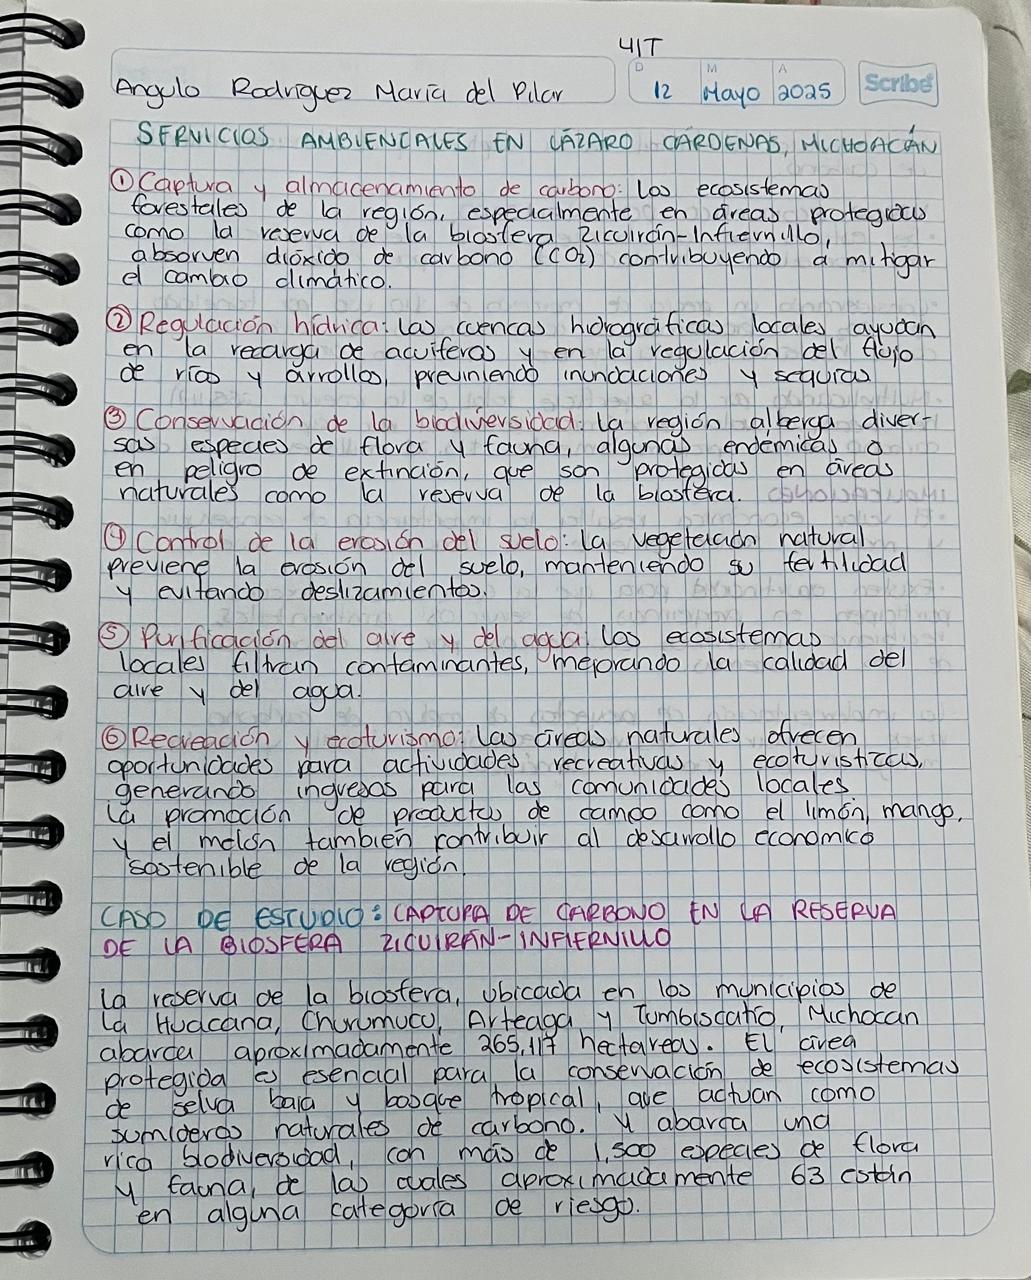 41T
D M A
Angulo Rodríguez María del Pilar 12 Mayo 2025 Scribe
SERVICIOS AMBIENCALES EN LÁZARO CÁRDENAS, MICHOACÁN
① Captura y almacenamiento de carbono: Los ecosistemas
forestales de la región, especialmente en áreas protegidas
como la reserva de la biosfera Zicuirán-Infiernillo,
absorven dióxido de carbono (CO2) contribuyendo a mitigar
el cambio climático.
② Regulación hídrica: Las cuencas hidrográficas locales ayudan
en la recarga de acuíferos y en la regulación del flujo
de ríos y arrollos, previniendo inundaciones y sequías
③ Conservación de la biodiversidad: La región alberga diver-
sas especies de flora y fauna, algunas endémicas o
en peligro de extinción, que son protegidas en áreas
naturales como la reserva de la biosfera.
④ Control de la erosión del suelo: La vegetación natural
previene la erosión del suelo, manteniendo su fertilidad
y evitando deslizamientos.
⑤ Purificación del aire y del agua: Los ecosistemas
locales filtran contaminantes, mejorando la calidad del
aire y del agua.
⑥ Recreación y ecoturismo: Las áreas naturales ofrecen
oportunidades para actividades recreativas y ecoturisticas,
generando ingresos para las comunidades locales.
La promoción de productos de campo como el limón, mango,
y el melón también contribuir al desarrollo economico
sostenible de la región.
CASO DE ESTUDIO: CAPTURA DE CARBONO EN LA RESERVA
DE LA BIOSFERA ZICUIRÁN-INFIERNILLO
La reserva de la biosfera, ubicada en los municipios de
La Huacana, Churumuco, Arteaga y Tumbiscatío, Michocan
abarca aproximadamente 265,117 hectareas. El área
protegida es esencial para la conservación de ecosistemas
de selva baja y bosque tropical, que actuan como
sumideros naturales de carbono. Y abarca una
rica biodiversidad, con más de 1,500 especies de flora
y fauna, de las cuales aproximadamente 63 están
en alguna categoría de riesgo.